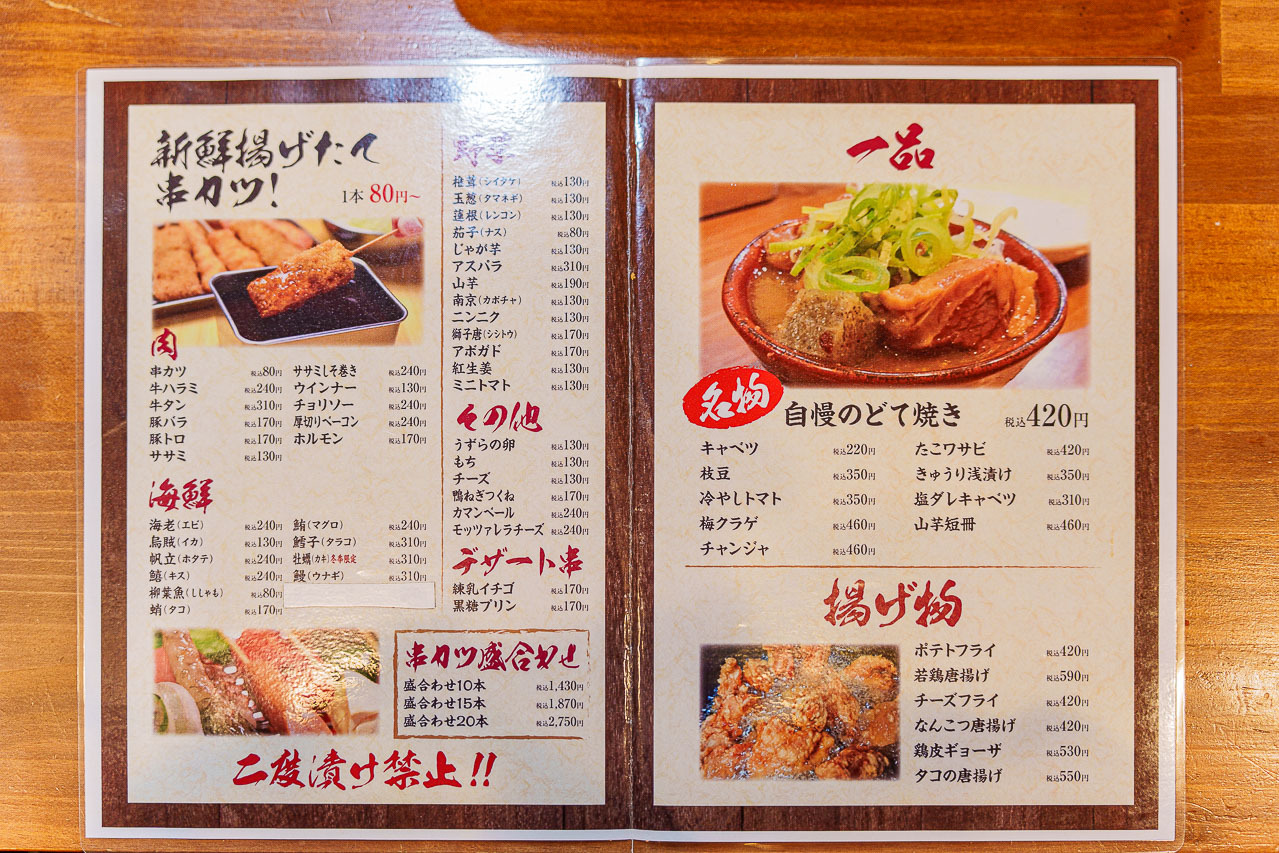 新鮮揚げたて
串カツ!
1本 80円〜
肉
串カツ 税込80円
牛ハラミ 税込240円
牛タン 税込310円
豚バラ 税込170円
豚トロ 税込170円
ササミ 税込130円
ササミしそ巻き 税込240円
ウインナー 税込130円
チョリソー 税込240円
厚切りベーコン 税込240円
ホルモン 税込170円
海鮮
海老(エビ) 税込240円
烏賊(イカ) 税込130円
帆立(ホタテ) 税込240円
鱚(キス) 税込240円
柳葉魚(ししゃも) 税込80円
蛸(タコ) 税込170円
鮪(マグロ) 税込240円
鱈子(タラコ) 税込310円
牡蠣(カキ)冬季限定 税込310円
鰻(ウナギ) 税込310円
野菜
椎茸(シイタケ) 税込130円
玉葱(タマネギ) 税込130円
蓮根(レンコン) 税込130円
茄子(ナス) 税込80円
じゃが芋 税込130円
アスパラ 税込310円
山芋 税込190円
南京(カボチャ) 税込130円
ニンニク 税込130円
獅子唐(シシトウ) 税込170円
アボガド 税込170円
紅生姜 税込130円
ミニトマト 税込130円
その他
うずらの卵 税込130円
もち 税込130円
チーズ 税込130円
鴨ねぎつくね 税込170円
カマンベール 税込240円
モッツァレラチーズ 税込240円
デザート串
練乳イチゴ 税込170円
黒糖プリン 税込170円
串カツ盛合わせ
盛合わせ10本 税込1,430円
盛合わせ15本 税込1,870円
盛合わせ20本 税込2,750円
二度漬け禁止!!
一品
名物
自慢のどて焼き 税込420円
キャベツ 税込220円
枝豆 税込350円
冷やしトマト 税込350円
梅クラゲ 税込460円
チャンジャ 税込460円
たこワサビ 税込420円
きゅうり浅漬け 税込350円
塩ダレキャベツ 税込310円
山芋短冊 税込460円
揚げ物
ポテトフライ 税込420円
若鶏唐揚げ 税込590円
チーズフライ 税込420円
なんこつ唐揚げ 税込420円
鶏皮ギョーザ 税込530円
タコの唐揚げ 税込550円